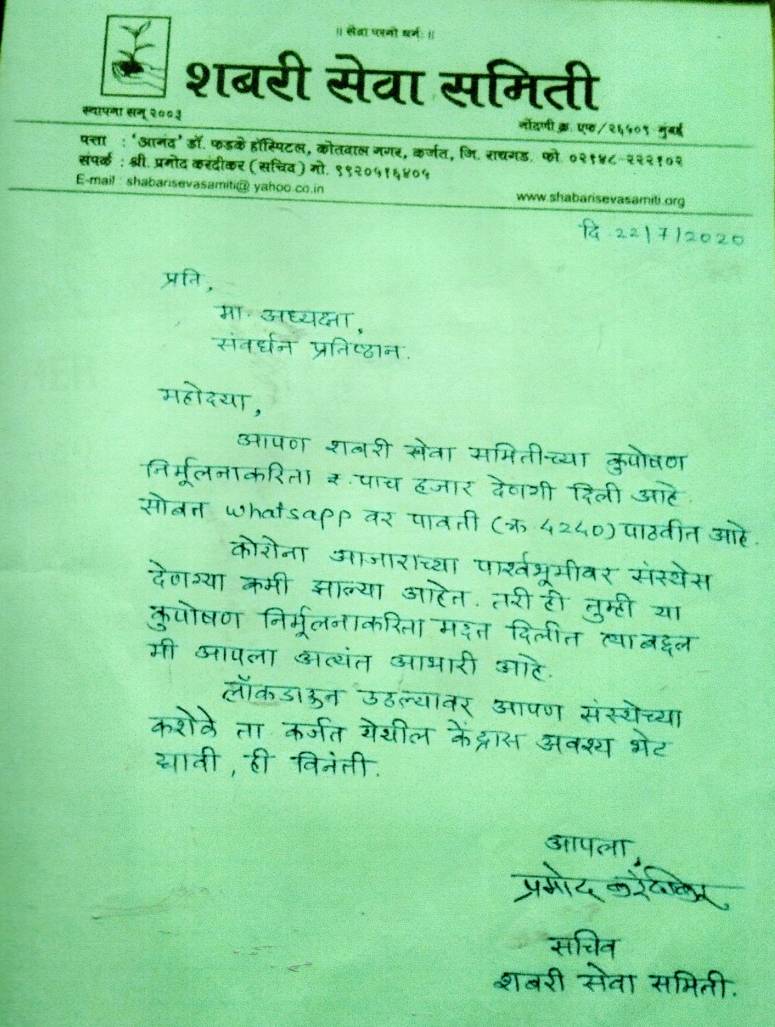 ॥ सेवा परमो धर्मः ॥
शबरी सेवा समिती
स्थापना सन् २००३
नोंदणी क्र. एफ/२६५०९ मुंबई
पत्ता : 'आनंद' डॉ. फडके हॉस्पिटल, कोतवाल नगर, कर्जत, जि. रायगड. फो. ०२१४८-२२२१०२
संपर्क : श्री. प्रमोद करंदीकर (सचिव) मो. ९९२०५१६४०५
E-mail : shabarisevasamiti@ yahoo.co.in
www.shabarisevasamiti.org
दि. 22/7/2020
प्रति,
मा. अध्यक्षा,
संवर्धन प्रतिष्ठान.
महोदया,
आपण शबरी सेवा समितीच्या कुपोषण
निर्मूलनाकरिता रु. पाच हजार देणगी दिली आहे.
सोबत whatsapp वर पावती (क्र 4240) पाठवीत आहे.
कोरोना आजाराच्या पार्श्वभूमीवर संस्थेस
देणग्या कमी झाल्या आहेत. तरी ही तुम्ही या
कुपोषण निर्मूलनाकरिता मदत दिलीत त्याबद्दल
मी आपला अत्यंत आभारी आहे.
लॉकडाऊन उठल्यावर आपण संस्थेच्या
कशेळे ता कर्जत येथील केंद्रास अवश्य भेट
द्यावी, ही विनंती.
आपला,
प्रमोद करंदीकर
सचिव
शबरी सेवा समिती.